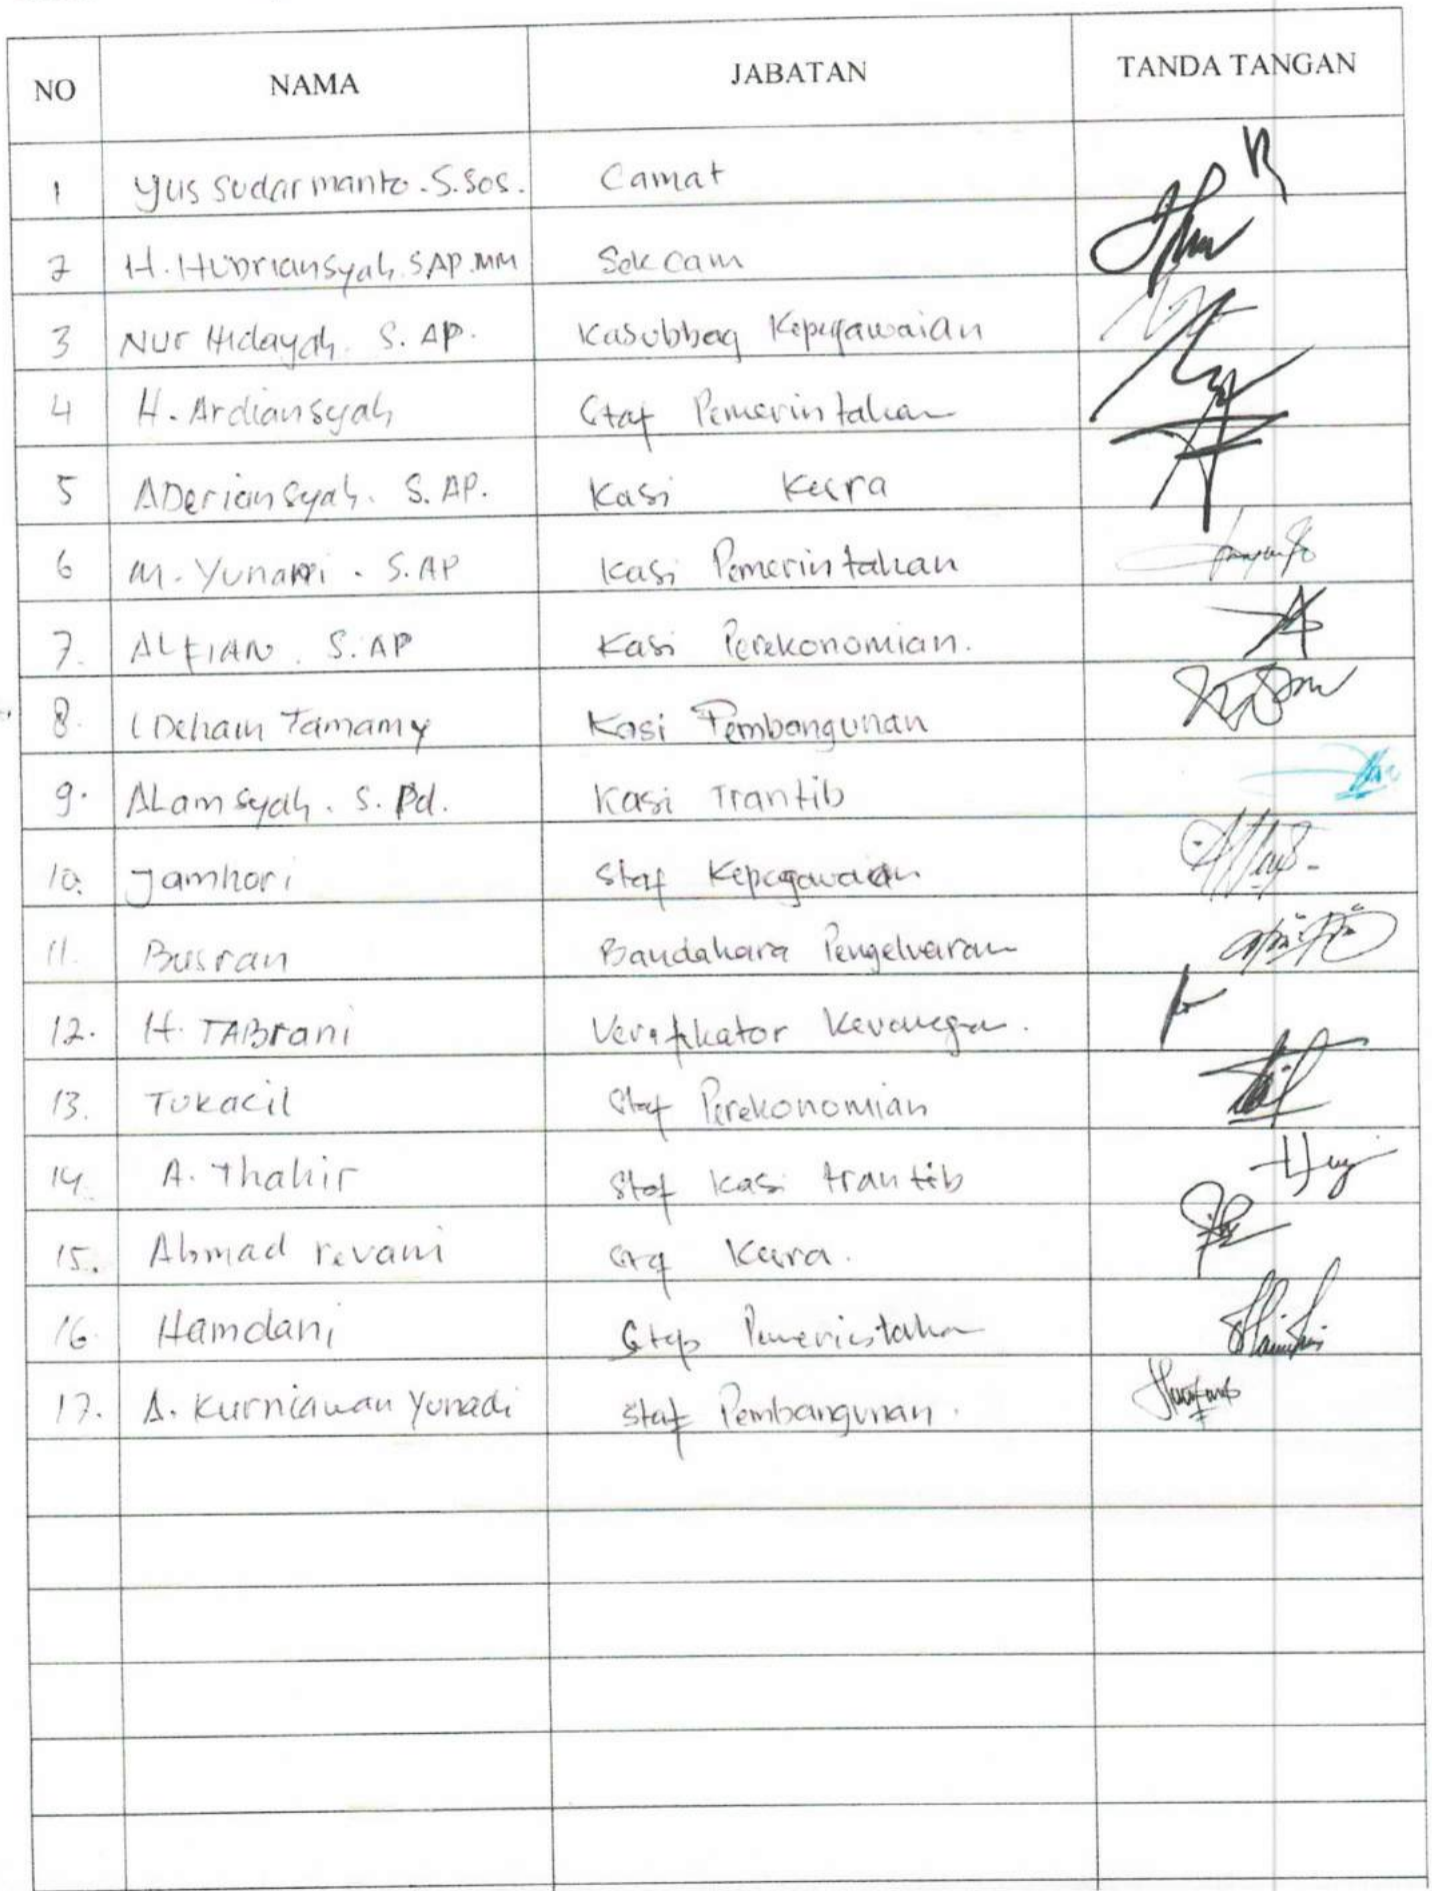 NO NAMA JABATAN TANDA TANGAN
1 Yus Sudarmanto. S.Sos. Camat
2 H. Hubriansyah. SAP. MM Sekcam
3 Nur Hidayah. S. AP. Kasubbag Kepegawaian
4 H. Ardiansyah Staf Pemerintahan
5 ADeriansyah. S. AP. Kasi Kesra
6 M. Yunani. S. AP Kasi Pemerintahan
7. ALFIAN. S. AP Kasi Perekonomian.
8. IDeham Tamamy Kasi Pembangunan
9. ALamsyah. S. Pd. Kasi Trantib
10. Jamhori Staf Kepegawaian
11. Busran Bandahara Pengeluaran
12. H. TABrani Verifikator Keuangan.
13. Tukacil Staf Perekonomian
14. A. Thahir Staf Kasi trantib
15. Ahmad revani Kesra.
16. Hamdani Pemerintahan
17. A. Kurniawan Yunadi Staf Pembangunan.